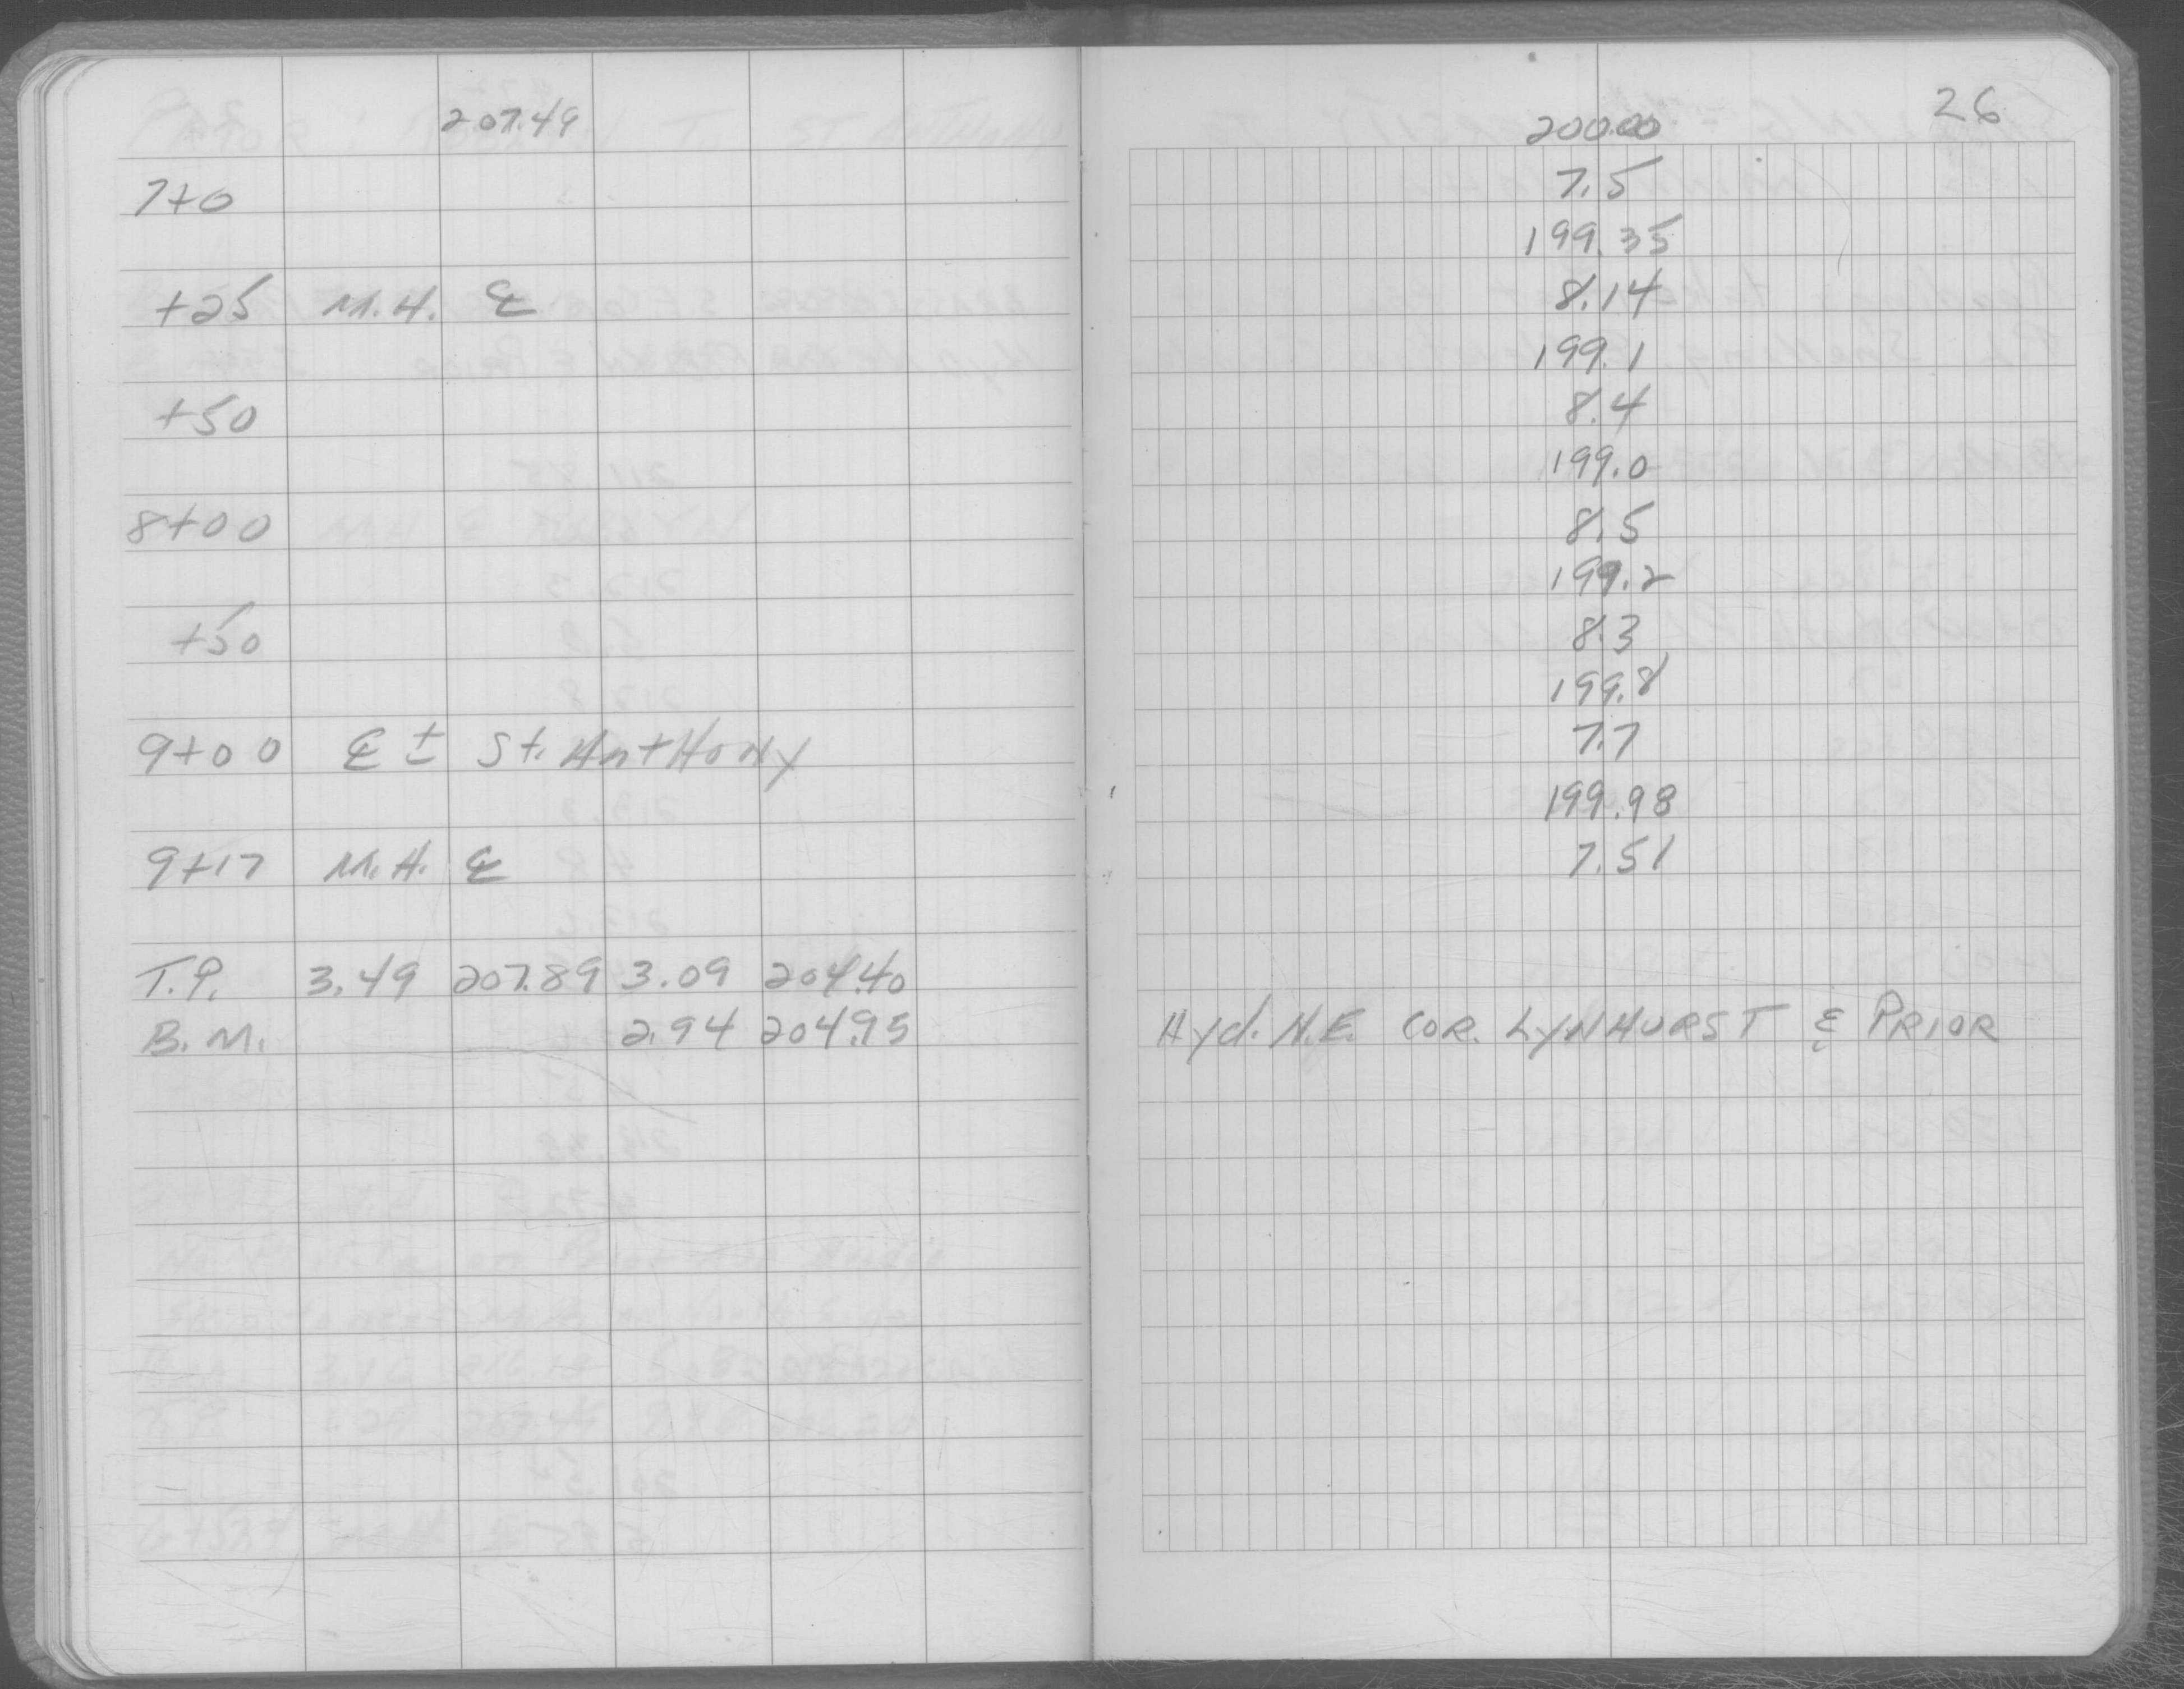 207.49
7+0
+25 M.H. ℄
+50
8+00
+50
9+00 ℄ ± St. AntHony
9+17 M.H. ℄
T.P. 3.49 207.89 3.09 204.40
B.M. 2.94 204.95
26
200.00
7.5
199.35
8.14
199.1
8.4
199.0
8.5
199.2
8.3
199.8
7.7
199.98
7.51
Hyd. N.E. COR. LYNHURST & PRIOR